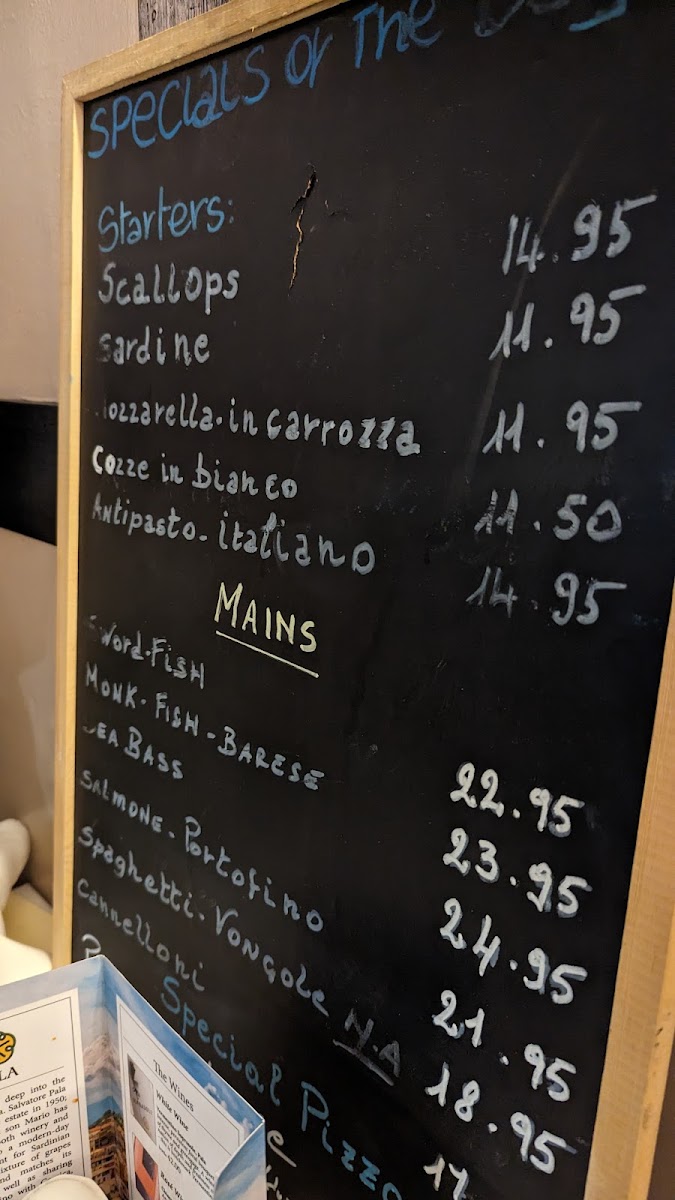 Specials of The Day
Starters:
Scallops 14.95
Sardine 11.95
Mozzarella.in carrozza 11.95
Cozze in bianco 11.50
Antipasto.italiano 14.95
MAINS
Sword.FISH 22.95
MONK-FISH-BARESE 23.95
SEA BASS 24.95
SALMONE.Portofino 21.95
Spaghetti.Vongole N.A 18.95
Cannelloni 17
Special Pizza
LA
deep into the
Salvatore Pala
estate in 1950;
son Mario has
winery and
a modern-day
for Sardinian
of grapes
matches its
well as sharing
with
The Wines
White Wine
Red